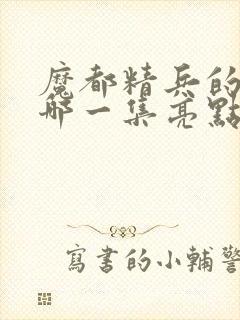 魔都精兵的
哪一集亮點
寫書的小輔警